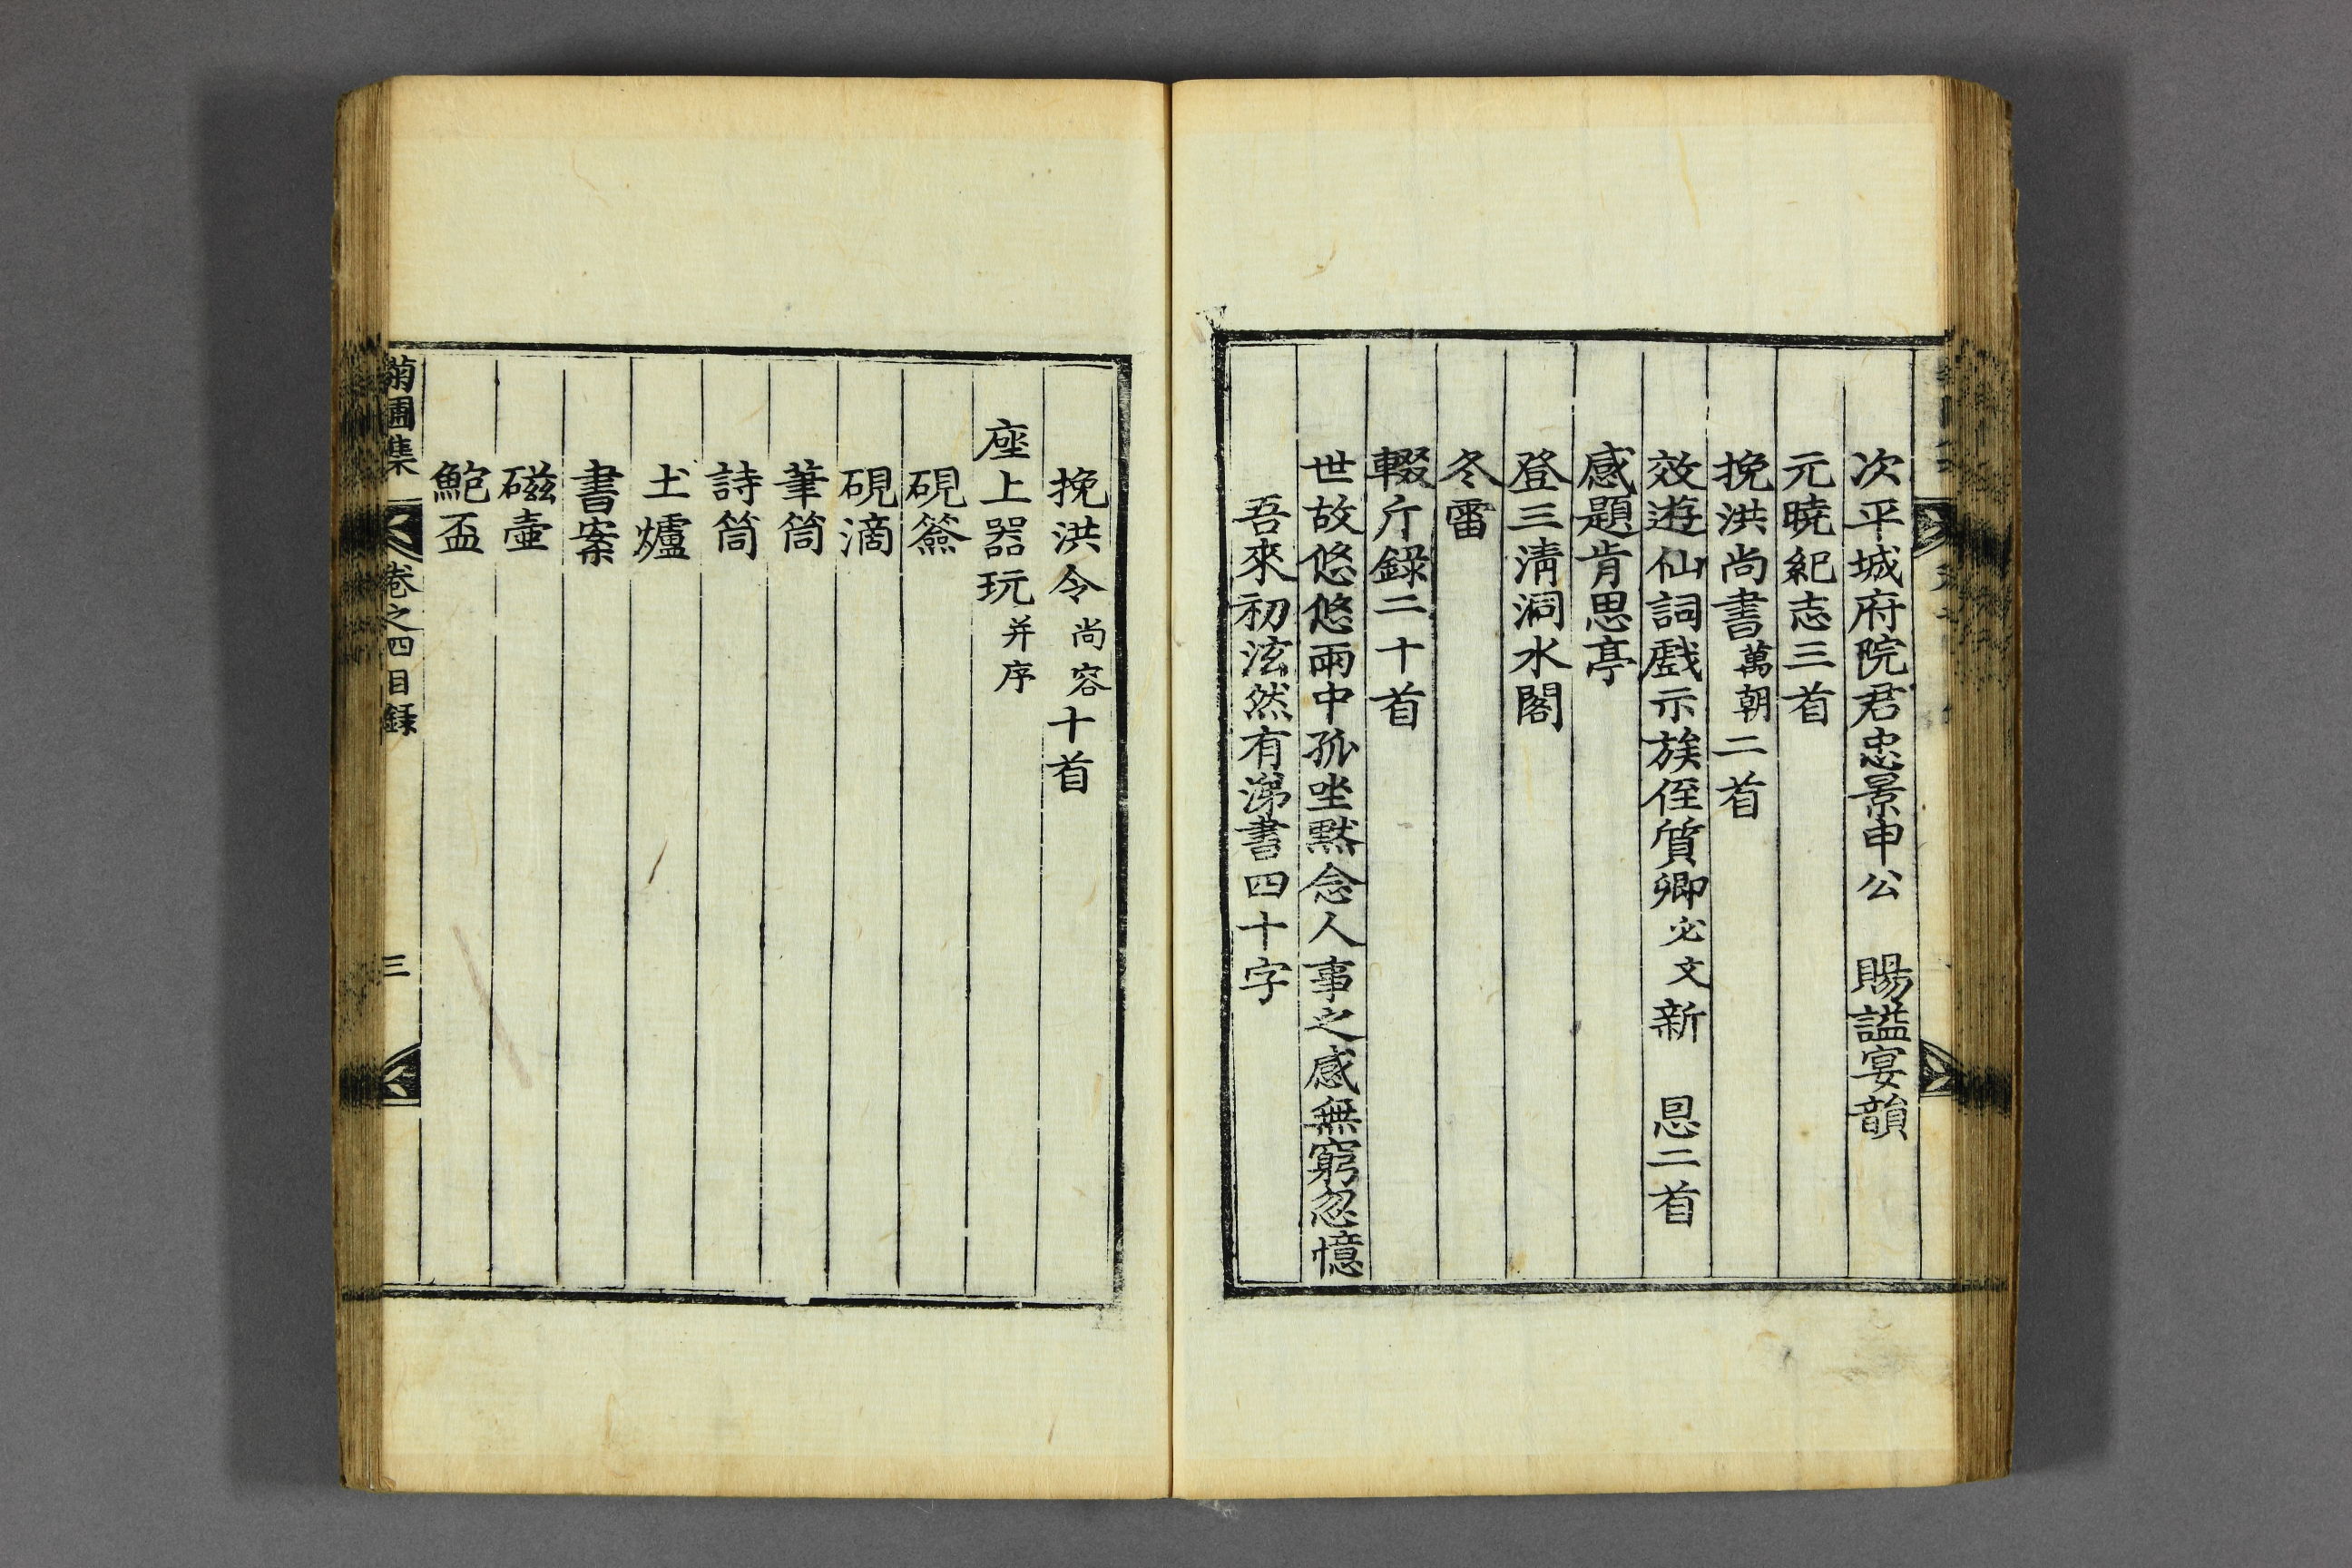 次平城府院君忠景申公　賜謚宴韻
元曉紀志三首
挽洪尚書萬朝二首
效遊仙詞戲示族侄質卿必文新　恩二首
感題肯思亭
登三淸洞水閣
冬雷
輟斤錄二十首
世故悠悠雨中孤坐黙念人事之感無窮忽憶
吾來初泫然有涕書四十字
挽洪令尚容十首
座上器玩并序
硯簽
硯滴
筆筒
詩筒
土爐
書案
磁壷
鮑盃
菊圃集　卷之四目録　三